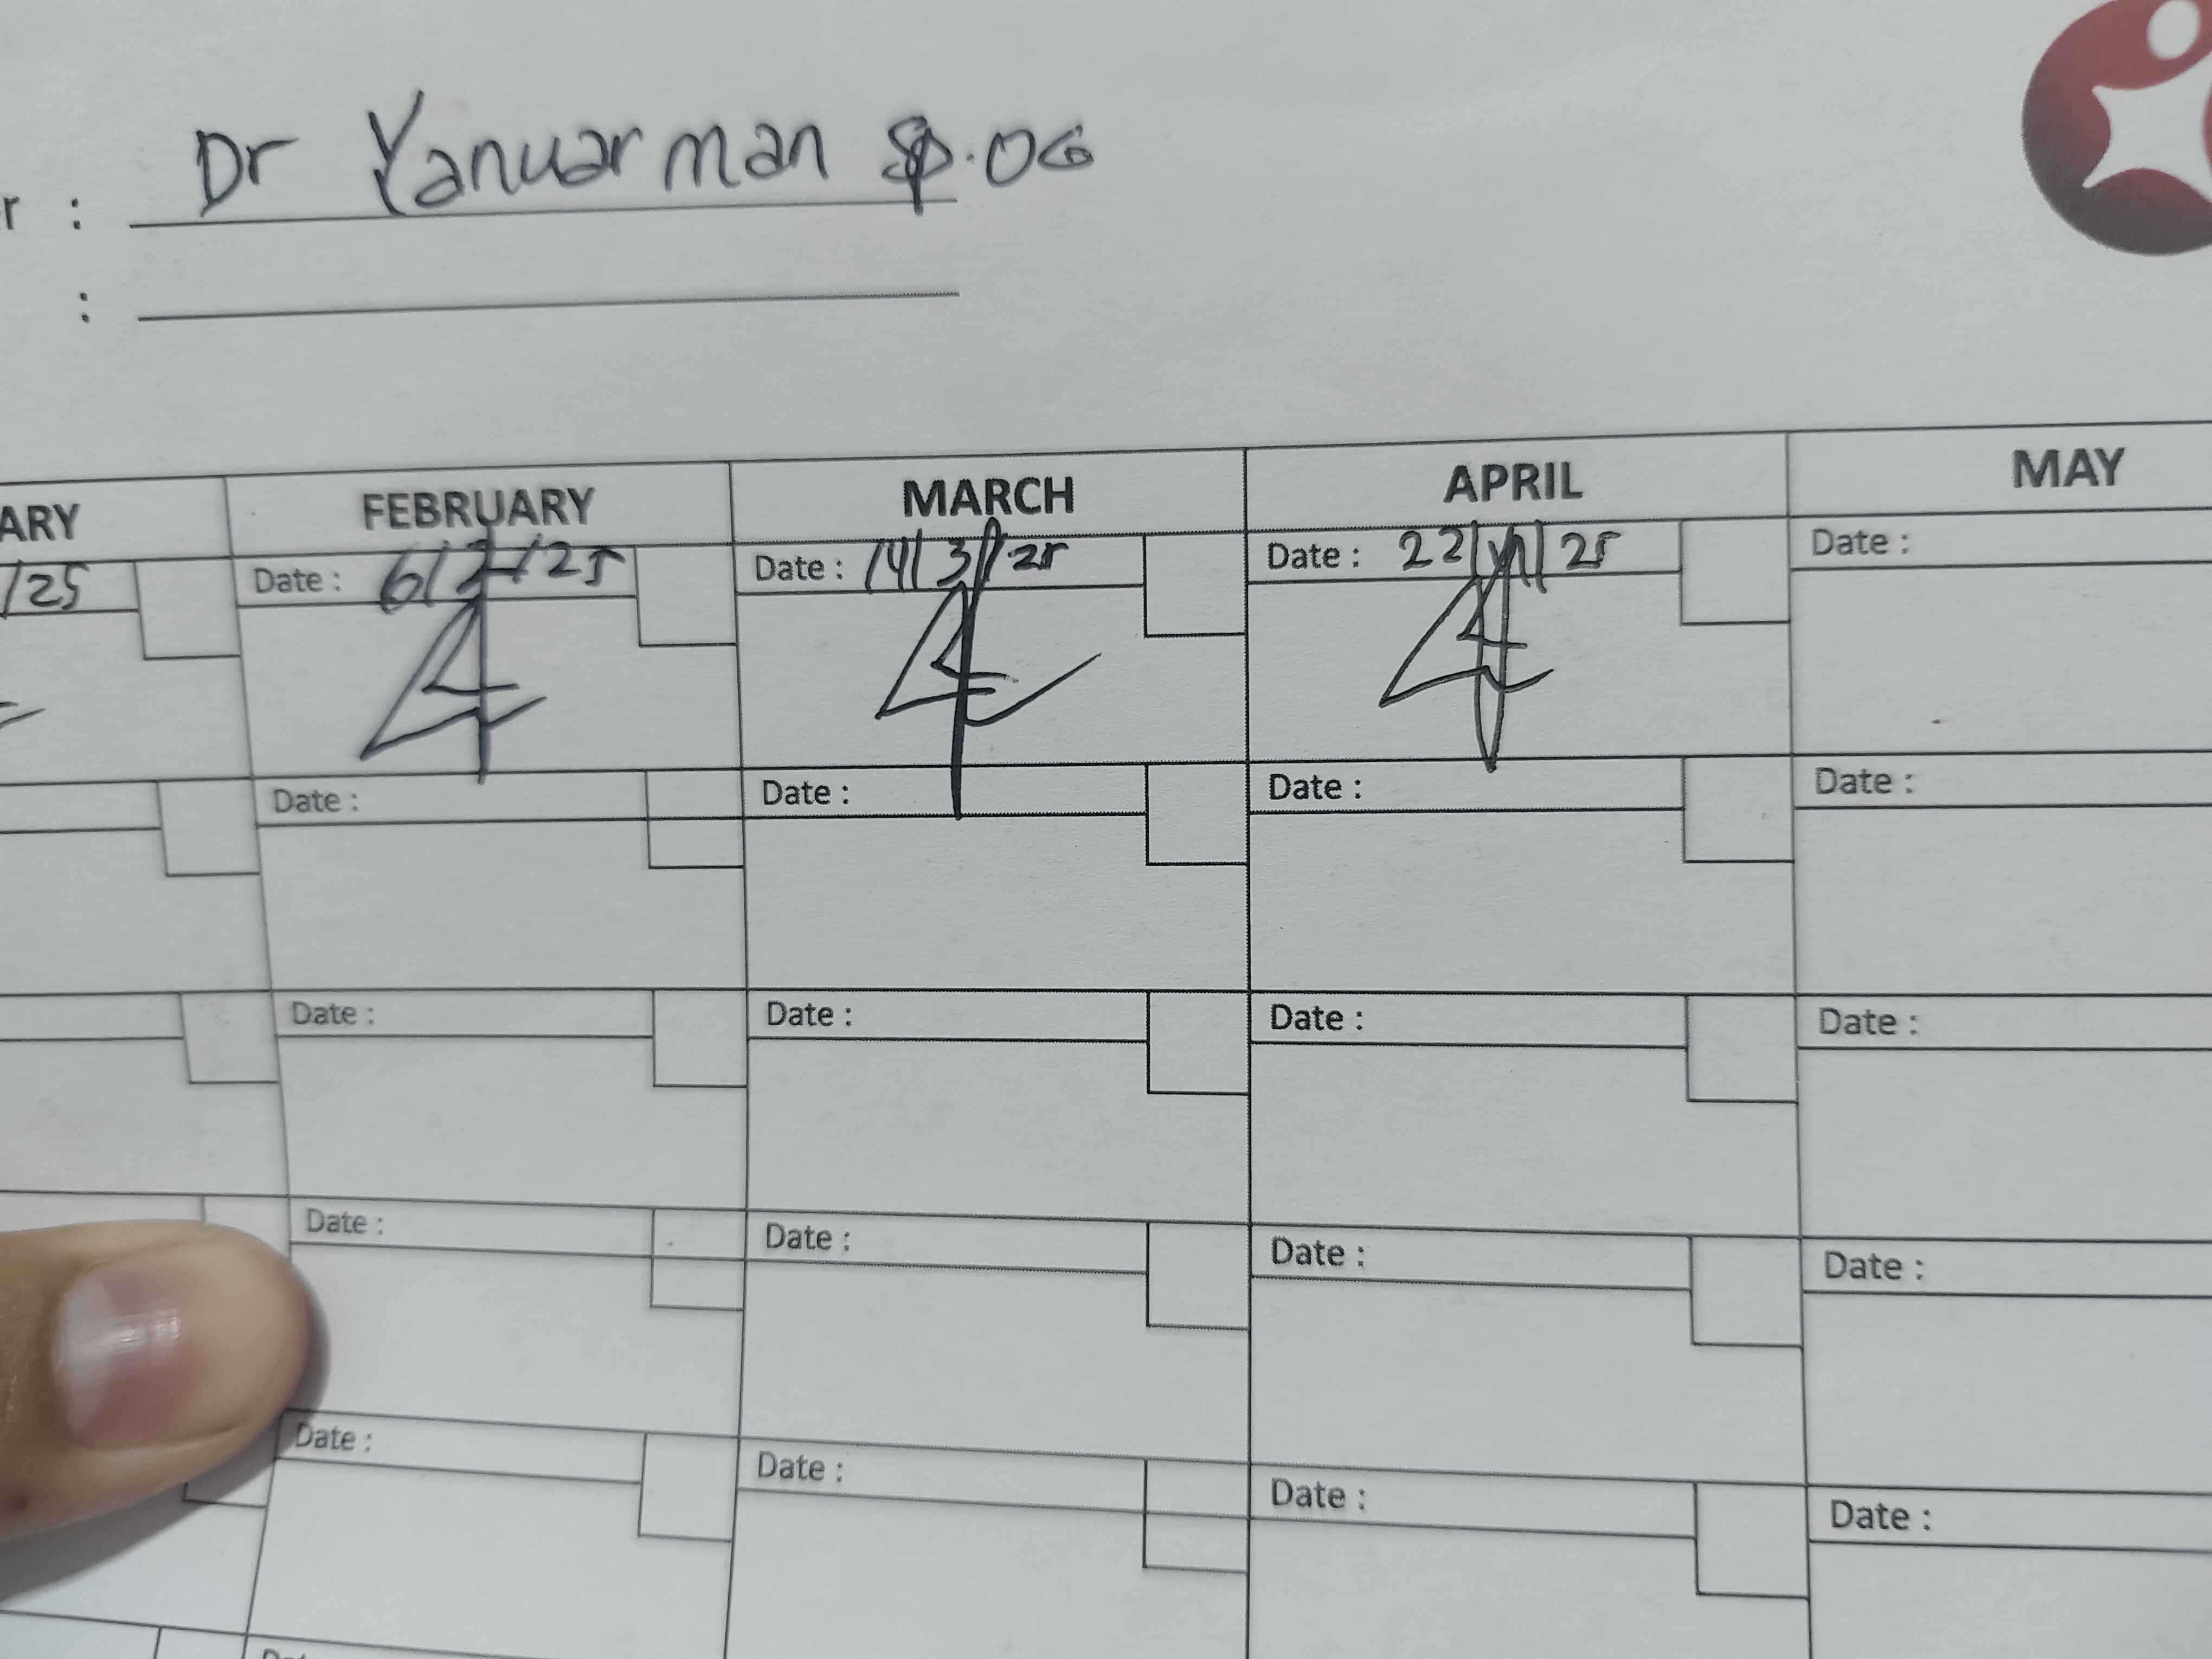 r : Dr Yanuarman Sp.OG
:
ARY FEBRUARY MARCH APRIL MAY
/25 Date : 6/2/25 Date : 14/3/25 Date : 22/ /25 Date :
Date : Date : Date : Date :
Date : Date : Date : Date :
Date : Date : Date : Date :
Date : Date : Date : Date :